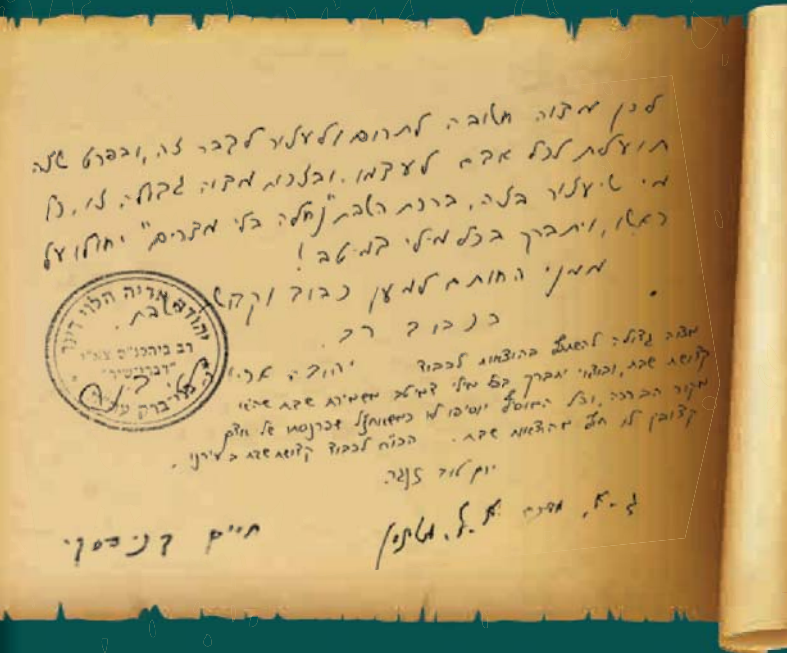 לכן מצוה חשובה לתרום ולעזור לדבר זה, ובפרט שזה
תועלת לכל אבא לעצמו. ובזכות מצוה גדולה זו, כל
מי שיעזור בזה, ברכת השבת "נחלה בלי מצרים" יחולו על
ראשו, ויתברך בכל מילי דמיטב!
ממני החותם למען כבוד וקדושת שבת.
בכבוד רב.
יהודה אריה הלוי דינר
רב ביהכנ"ס
"דברי שיר"
בני ברק
יהודה ארי
מצוה גדולה להשתתף בהוצאות לכבוד
קדושת שבת, ובודאי יתברך בכל מילי דמיטב משמירת שבת שהיא
מקור הברכה, וכל המוסיף יוסיפו לו כמשאחז"ל שפרנסתו של אדם
קצובה לו חוץ מהוצאות שבת. הכו"ח לכבוד קדושת שבת בעירנו.
יום טוב זנגר
ג-א,
חיים קניבסקי